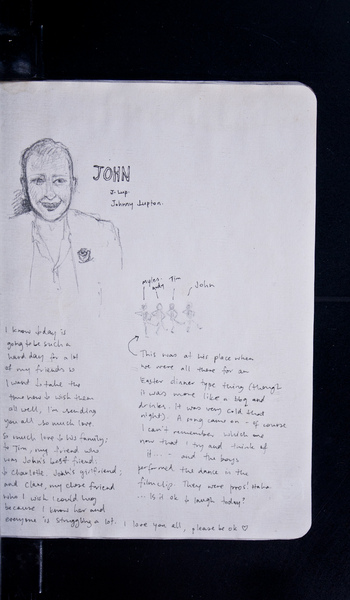 JOHN
J-Lup.
Johnny Lupton.
Tim
John
I know today is
going to be such a
hard day for a lot
of my friends &
I want to take the
time now to wish them
all well, I'm sending
you all so much love.
So much love to his family;
to Tim, my friend who
was John's best friend;
to Charlotte, John's girlfriend;
and Clare, my close friend
who I wish I could hug
because I know her and
everyone is struggling a lot. I love you all, please be ok ♡
This was at her place when
we were all there for an
Easter dinner type thing (though
it was more like a bbq and
drinks. It was very cold that
night). A song came on - of course
I can't remember which one
now that I try and think of
it... - and the boys
performed the dance in the
filmclip. They were pros! Haha
... Is it ok to laugh today?